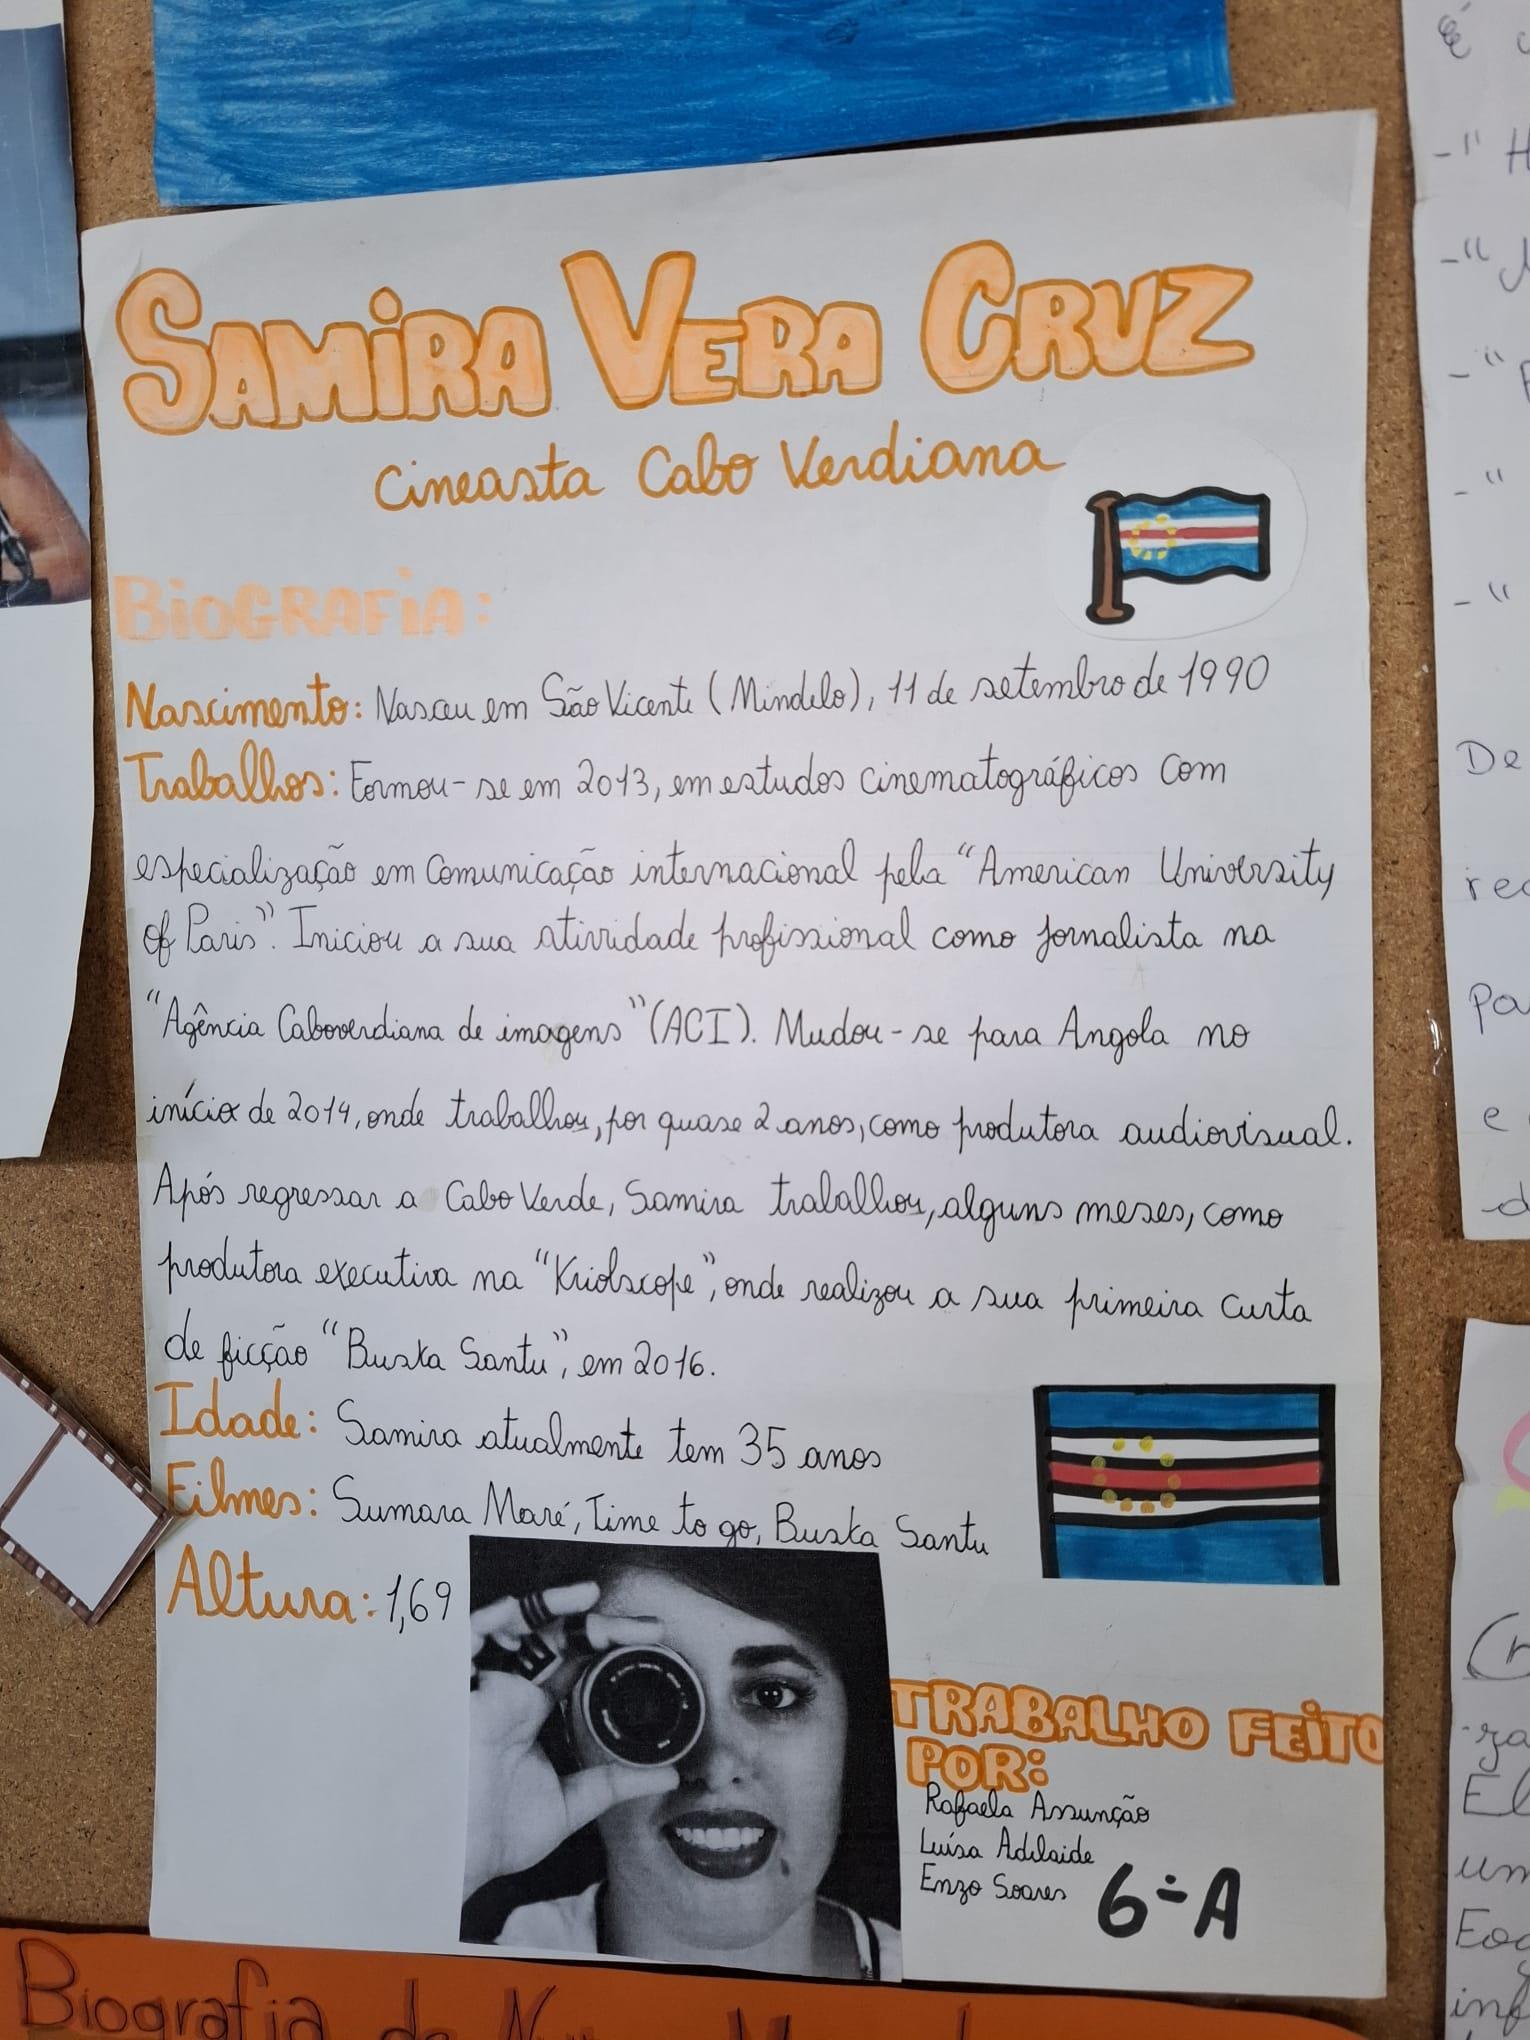 SAMIRA VERA CRUZ
Cineasta Cabo Verdiana
BIOGRAFIA:
Nascimento: Nasceu em São Vicente (Mindelo), 11 de setembro de 1990
Trabalhos: Formou-se em 2013, em estudos cinematográficos com
especialização em Comunicação internacional pela "American University
of Paris". Iniciou a sua atividade profissional como jornalista na
"Agência Caboverdiana de imagens" (ACI). Mudou-se para Angola no
início de 2014, onde trabalhou, por quase 2 anos, como produtora audiovisual.
Após regressar a Cabo Verde, Samira trabalhou, alguns meses, como
produtora executiva na "Kriolscope", onde realizou a sua primeira curta
de ficção "Buska Santu", em 2016.
Idade: Samira atualmente tem 35 anos
Filmes: Sumara Maré, Time to go, Buska Santu
Altura: 1,69
TRABALHO FEITO
POR:
Rafaela Assunção
Luísa Adelaide
Enzo Soares
6º A
Biografia de
De
e